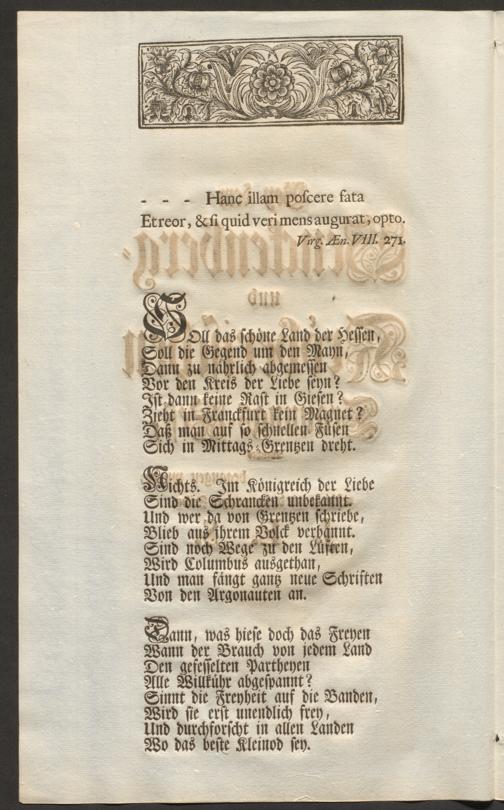 - - - Hanc illam poscere fata
Et reor, & si quid veri mens augurat, opto.
Virg. Æn. VIII. 271.
SOll das schöne Land der Hessen,
Soll die Gegend um den Mayn,
Dann zu nährlich abgemessen
Vor den Kreis der Liebe seyn?
Ist dann keine Rast in Giesen?
Zieht in Franckfurt kein Magnet?
Daß man auf so schnellen Füsen
Sich in Mittags-Grentzen dreht.
Nichts. Im Königreich der Liebe
Sind die Schrancken unbekannt.
Und wer da von Grentzen schriebe,
Blieb aus ihrem Volck verbannt.
Sind noch Wege zu den Lüften,
Wird Columbus ausgethan,
Und man fängt gantz neue Schriften
Von den Argonauten an.
Dann, was hiese doch das Freyen
Wann der Brauch von jedem Land
Den gefesselten Partheyen
Alle Willkühr abgespannt?
Sinnt die Freyheit auf die Banden,
Wird sie erst unendlich frey,
Und durchforscht in allen Landen
Wo das beste Kleinod sey.